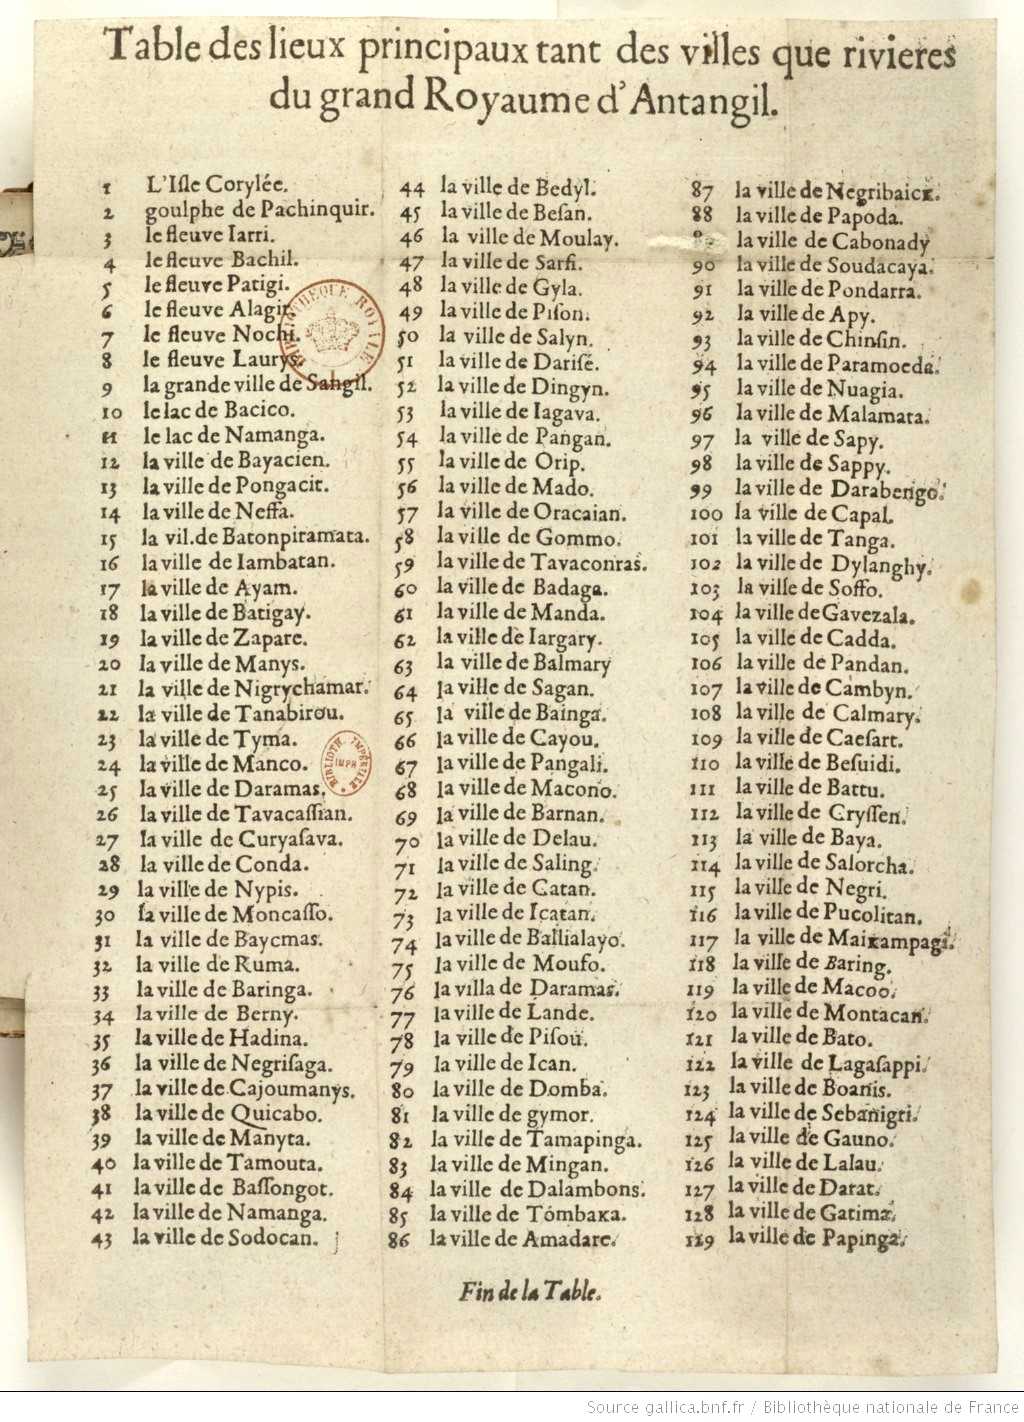 Table des lieux principaux tant des villes que rivieres
du grand Royaume d'Antangil.
1 L'Isle Corylée.
2 goulphe de Pachinquir.
3 le fleuve Iarri.
4 le fleuve Bachil.
5 le fleuve Patigi.
6 le fleuve Alagir.
7 le fleuve Nochi.
8 le fleuve Laurys.
9 la grande ville de Sangil.
10 le lac de Bacico.
11 le lac de Namanga.
12 la ville de Bayacien.
13 la ville de Pongacit.
14 la ville de Neffa.
15 la vil.de Batonpiramata.
16 la ville de Iambatan.
17 la ville de Ayam.
18 la ville de Batigay.
19 la ville de Zapare.
20 la ville de Manys.
21 la ville de Nigrychamar.
22 la ville de Tanabirou.
23 la ville de Tyma.
24 la ville de Manco.
25 la ville de Daramas.
26 la ville de Tavacassian.
27 la ville de Curyasava.
28 la ville de Conda.
29 la ville de Nypis.
30 la ville de Moncasso.
31 la ville de Baycmas.
32 la ville de Ruma.
33 la ville de Baringa.
34 la ville de Berny.
35 la ville de Hadina.
36 la ville de Negrisaga.
37 la ville de Cajoumanys.
38 la ville de Quicabo.
39 la ville de Manyta.
40 la ville de Tamouta.
41 la ville de Bassongot.
42 la ville de Namanga.
43 la ville de Sodocan.
44 la ville de Bedyl.
45 la ville de Besan.
46 la ville de Moulay.
47 la ville de Sarfi.
48 la ville de Gyla.
49 la ville de Pison.
50 la ville de Salyn.
51 la ville de Darisé.
52 la ville de Dingyn.
53 la ville de Iagava.
54 la ville de Pangan.
55 la ville de Orip.
56 la ville de Mado.
57 la ville de Oracaian.
58 la ville de Gommo.
59 la ville de Tavaconras.
60 la ville de Badaga.
61 la ville de Manda.
62 la ville de Iargary.
63 la ville de Balmary
64 la ville de Sagan.
65 la ville de Bainga.
66 la ville de Cayou.
67 la ville de Pangali.
68 la ville de Macono.
69 la ville de Barnan.
70 la ville de Delau.
71 la ville de Saling.
72 la ville de Catan.
73 la ville de Icatan.
74 la ville de Ballialayo.
75 la ville de Moufo.
76 la villa de Daramas.
77 la ville de Lande.
78 la ville de Pisou.
79 la ville de Ican.
80 la ville de Domba.
81 la ville de gymor.
82 la ville de Tamapinga.
83 la ville de Mingan.
84 la ville de Dalambons.
85 la ville de Tómbaka.
86 la ville de Amadare.
87 la ville de Negribaick.
88 la ville de Papoda.
la ville de Cabonady
90 la ville de Soudacaya.
91 la ville de Pondarra.
92 la ville de Apy.
93 la ville de Chinsin.
94 la ville de Paramoeda.
95 la ville de Nuagia.
96 la ville de Malamata.
97 la ville de Sapy.
98 la ville de Sappy.
99 la ville de Darabengo.
100 la ville de Capal.
101 la ville de Tanga.
102 la ville de Dylanghy.
103 la ville de Soffo.
104 la ville de Gavezala.
105 la ville de Cadda.
106 la ville de Pandan.
107 la ville de Cambyn.
108 la ville de Calmary.
109 la ville de Caesart.
110 la ville de Besuidi.
111 la ville de Battu.
112 la ville de Cryssen.
113 la ville de Baya.
114 la ville de Salorcha.
115 la ville de Negri.
116 la ville de Pucolitan.
117 la ville de Maikampagi.
118 la ville de Baring.
119 la ville de Macoo.
120 la ville de Montacan.
121 la ville de Bato.
122 la ville de Lagasappi.
123 la ville de Boanis.
124 la ville de Sebanigri.
125 la ville de Gauno.
126 la ville de Lalau.
127 la ville de Darat.
128 la ville de Gatima.
129 la ville de Papinga.
Fin de la Table.
BIBLIOTHEQUE ROYALE
BIBLIOTH. IMPÉRIALE
IMPR
Source gallica.bnf.fr / Bibliothèque nationale de France